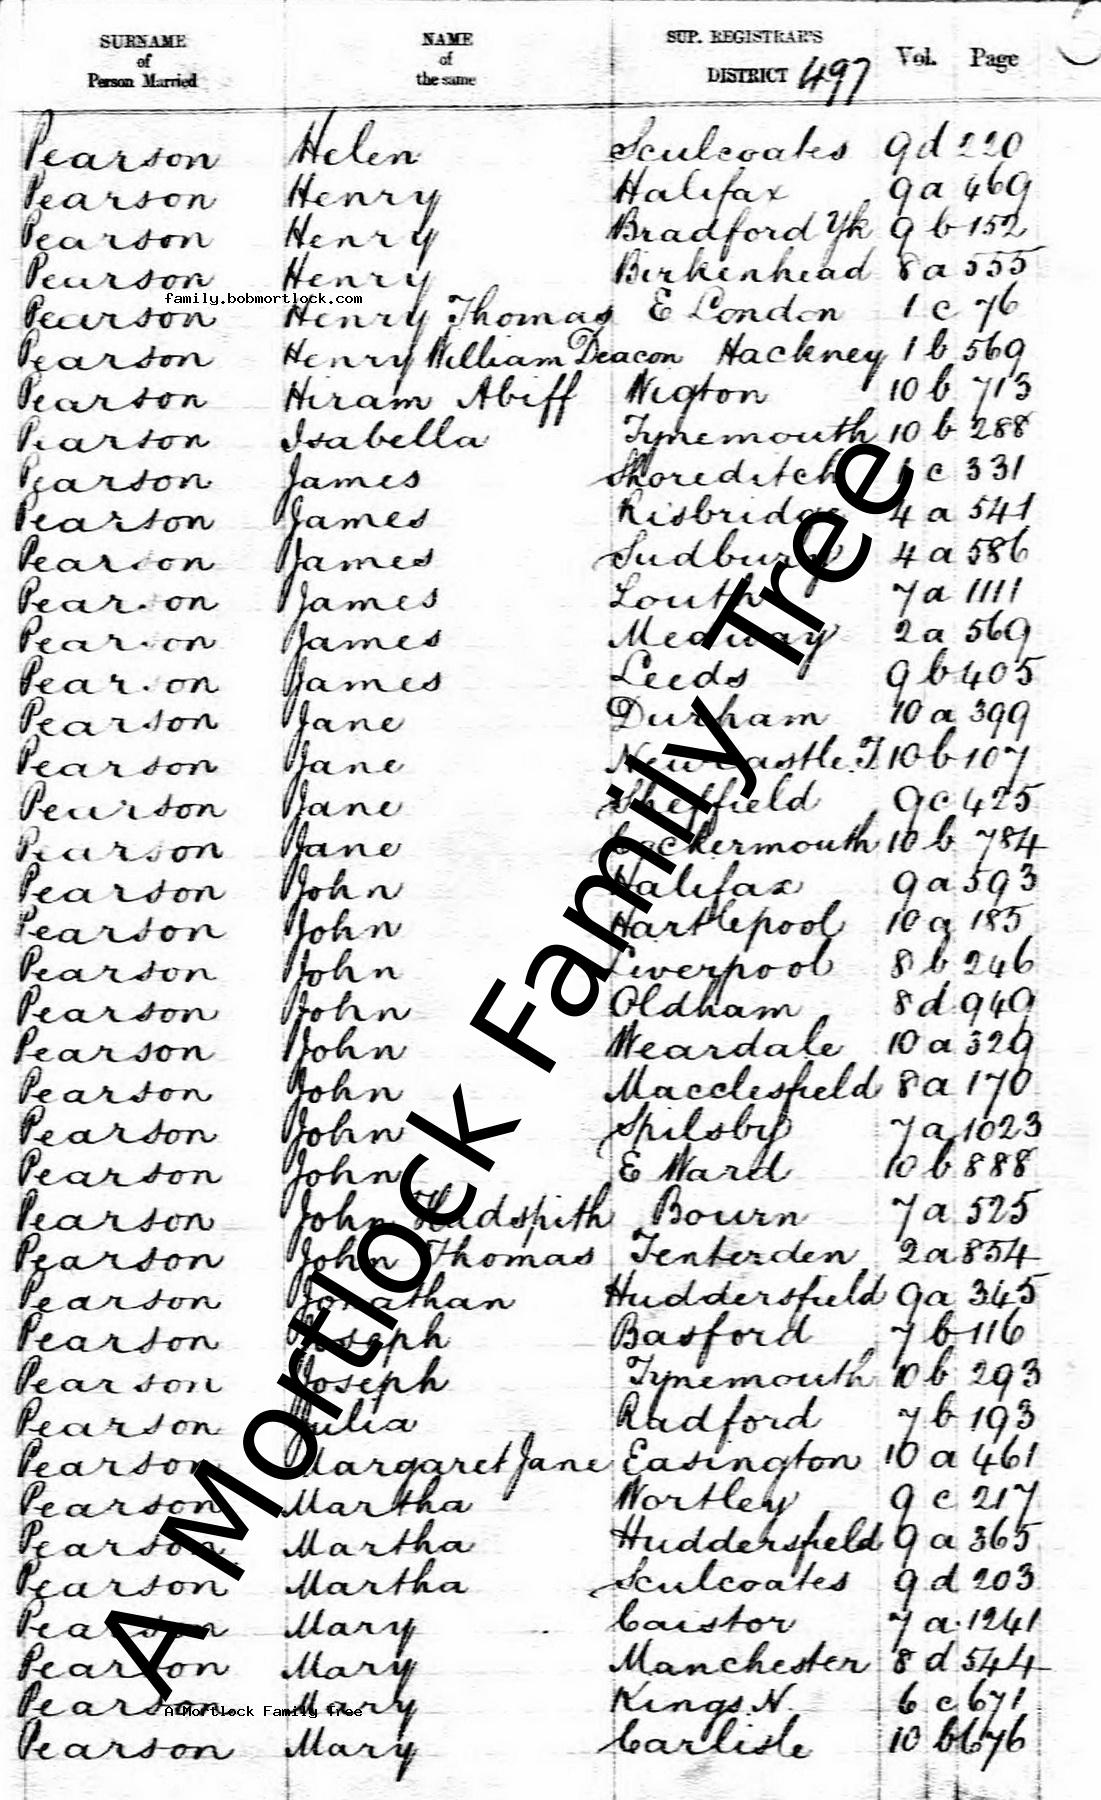 SURNAME of Person Married NAME of the same SUP. REGISTRAR'S DISTRICT 497 Vol. Page
Pearson Helen Sculcoates 9d 220
Pearson Henry Halifax 9a 469
Pearson Henry Bradford Yk 9b 152
Pearson Henry Birkenhead 8a 555
family.bobmortlock.com
Pearson Henry Thomas E London 1c 76
Pearson Henry William Deacon Hackney 1b 569
Pearson Hiram Abiff Wigton 10b 713
Pearson Isabella Tynemouth 10b 288
Pearson James Shoreditch 1c 331
Pearson James Risbridge 4a 541
Pearson James Sudbury 4a 586
Pearson James Louth 7a 1111
Pearson James Medway 2a 569
Pearson James Leeds 9b 405
Pearson Jane Durham 10a 399
Pearson Jane Newcastle.T. 10b 107
Pearson Jane Sheffield 9c 425
Pearson Jane Cockermouth 10b 784
Pearson John Halifax 9a 593
Pearson John Hartlepool 10a 185
Pearson John Liverpool 8b 246
Pearson John Oldham 8d 949
Pearson John Weardale 10a 329
Pearson John Macclesfield 8a 170
Pearson John Spilsby 7a 1023
Pearson John E Ward 10b 888
Pearson John Hudspith Bourn 7a 525
Pearson John Thomas Tenterden 2a 854
Pearson Jonathan Huddersfield 9a 345
Pearson Joseph Basford 7b 116
Pearson Joseph Tynemouth 10b 293
Pearson Julia Radford 7b 193
Pearson Margaret Jane Easington 10a 461
Pearson Martha Wortley 9c 217
Pearson Martha Huddersfield 9a 365
Pearson Martha Sculcoates 9d 203
Pearson Mary Caistor 7a 1241
Pearson Mary Manchester 8d 544
Pearson Mary Kings N. 6c 671
A Mortlock Family Tree
Pearson Mary Carlisle 10b 676
A Mortlock Family Tree